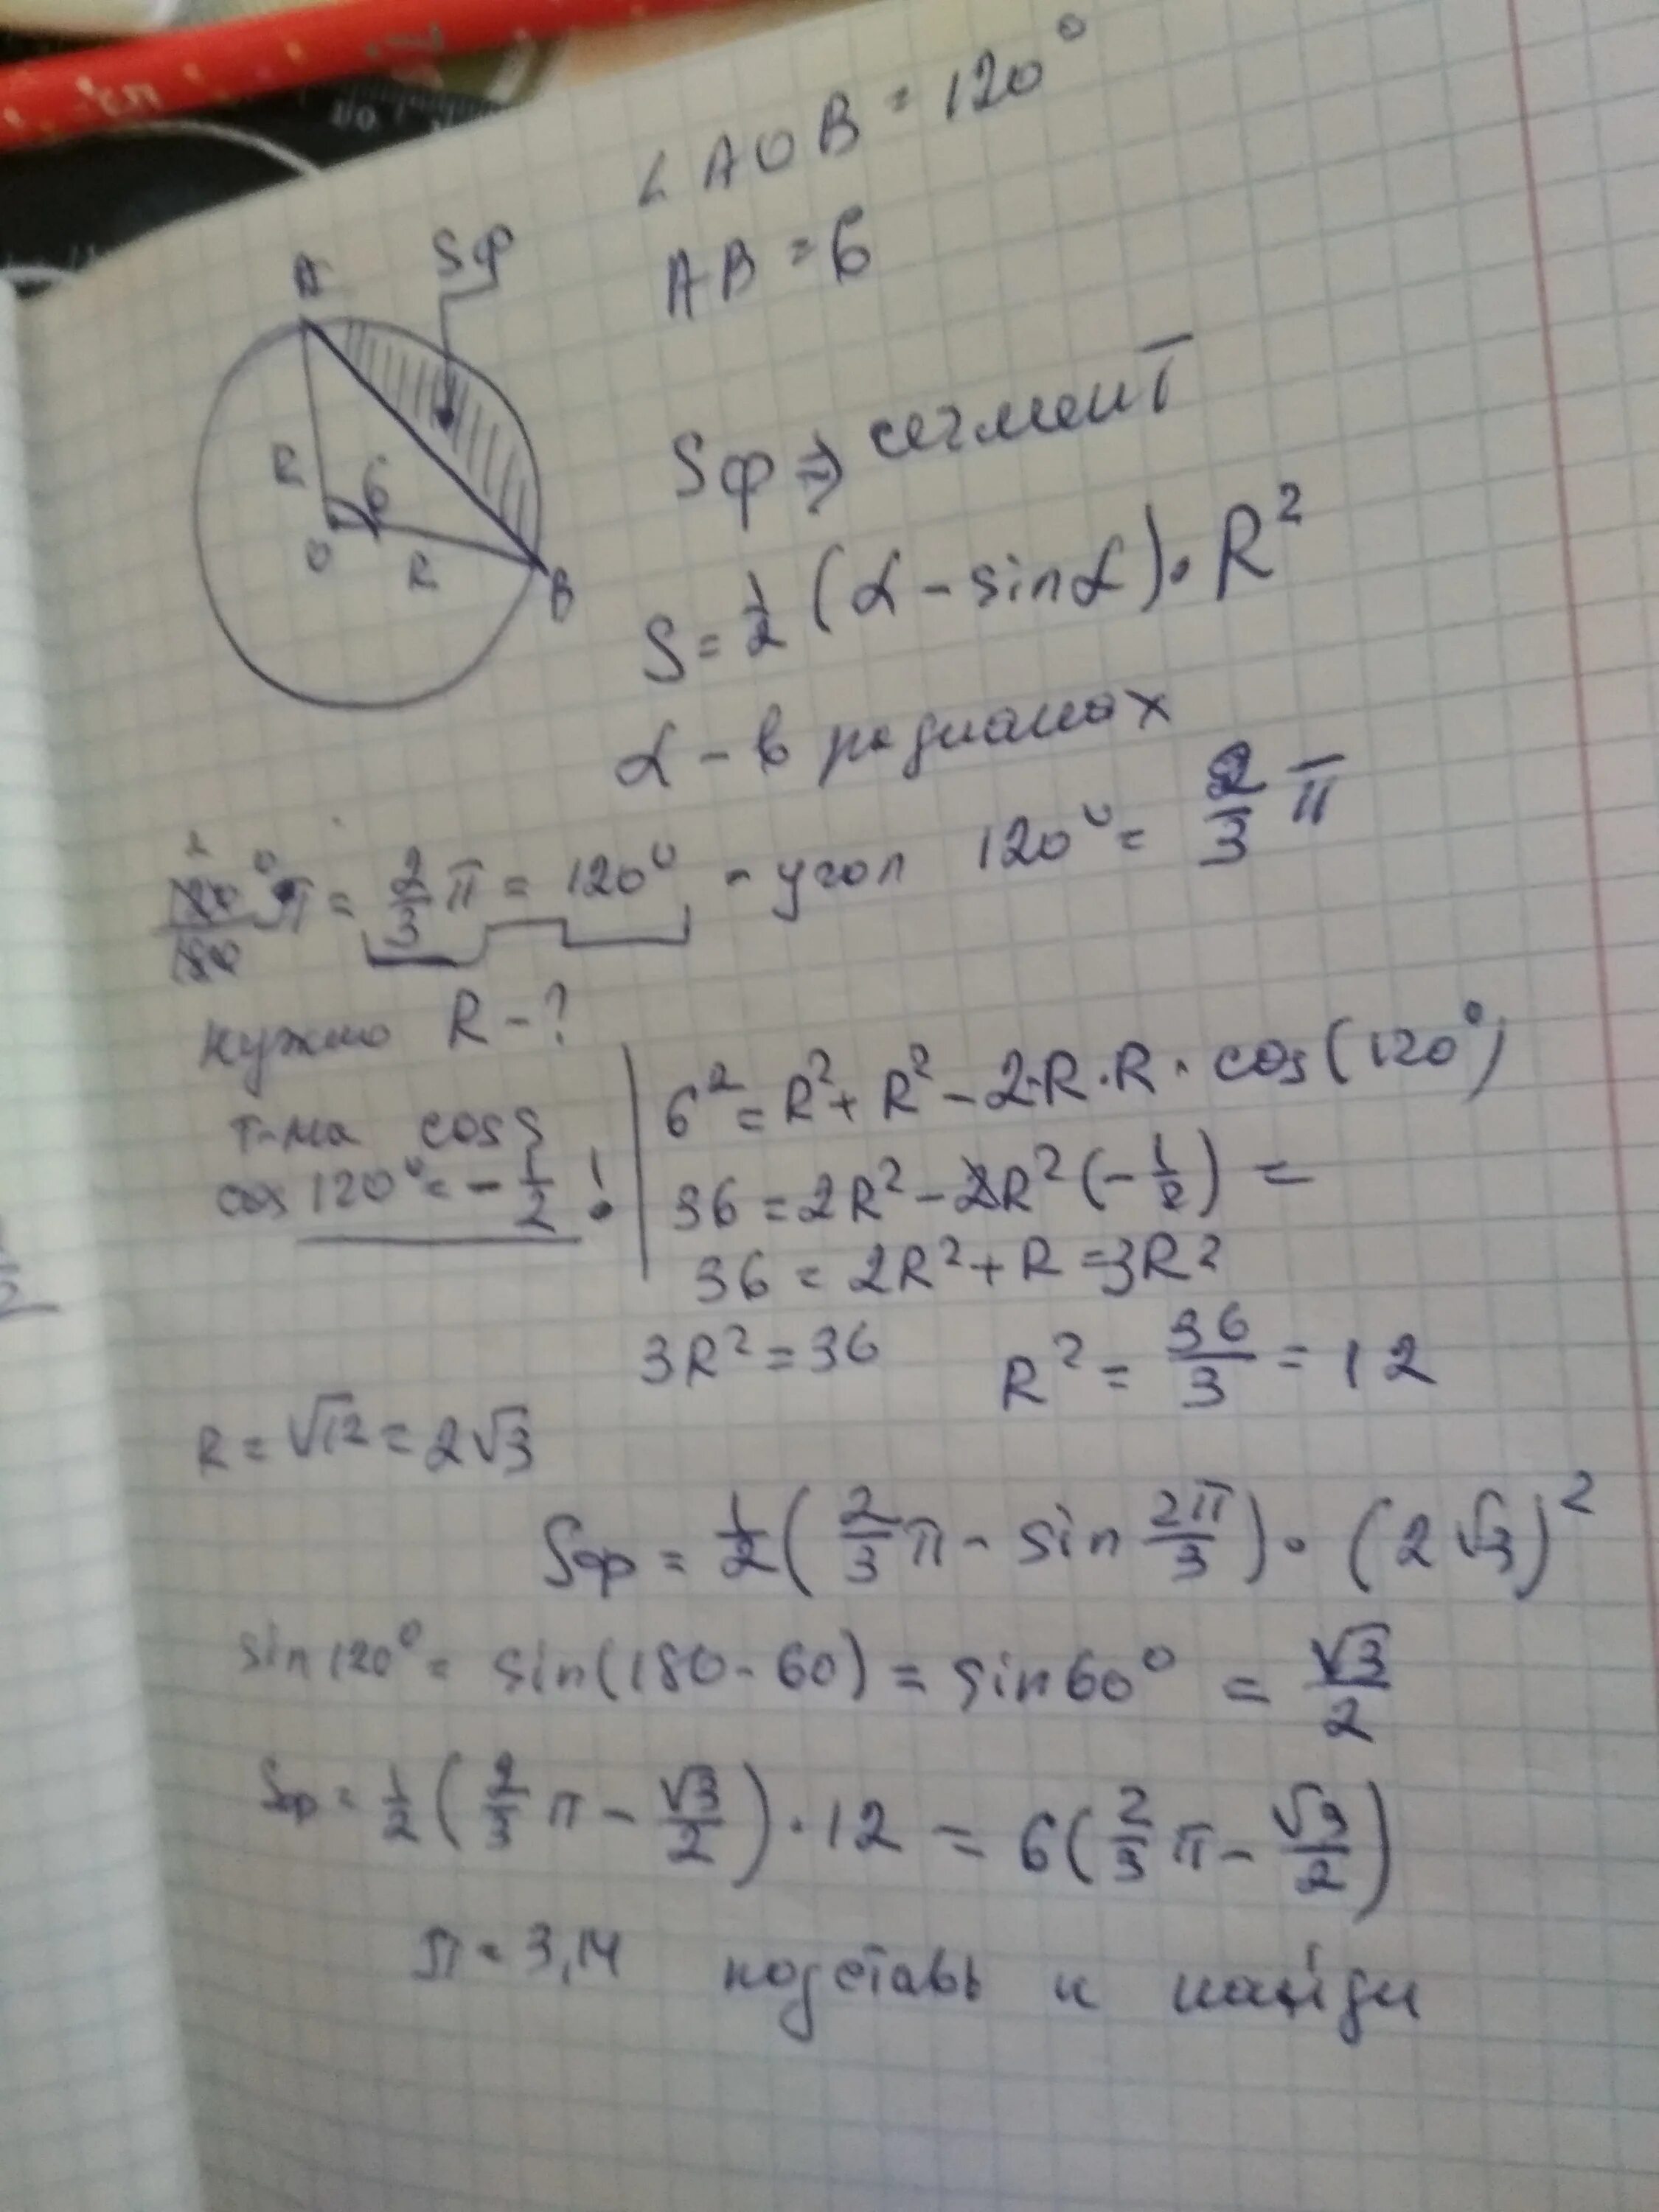 ∠AOB = 120°
AB = 6
A
Sф
R
6
O
R
B
Sф ⇒ сегмент
S = 1/2 (α - sinα) · R²
α - в радианах
= 2/3 π = 120° - угол 120° = 2/3 π
нужно R - ?
т-ма cos
cos 120° = - 1/2 !
6² = R² + R² - 2·R·R · cos(120°)
36 = 2R² - 2R² (- 1/2) =
36 = 2R² + R = 3R²
3R² = 36 R² = 36/3 = 12
R = √12 = 2√3
Sф = 1/2 ( 2/3 π - sin 2π/3 ) · (2√3)²
sin 120° = sin(180 - 60) = sin60° = √3/2
Sф = 1/2 ( 2/3 π - √3/2 ) · 12 = 6( 2/3 π - √3/2 )
π = 3,14 подставь и найди